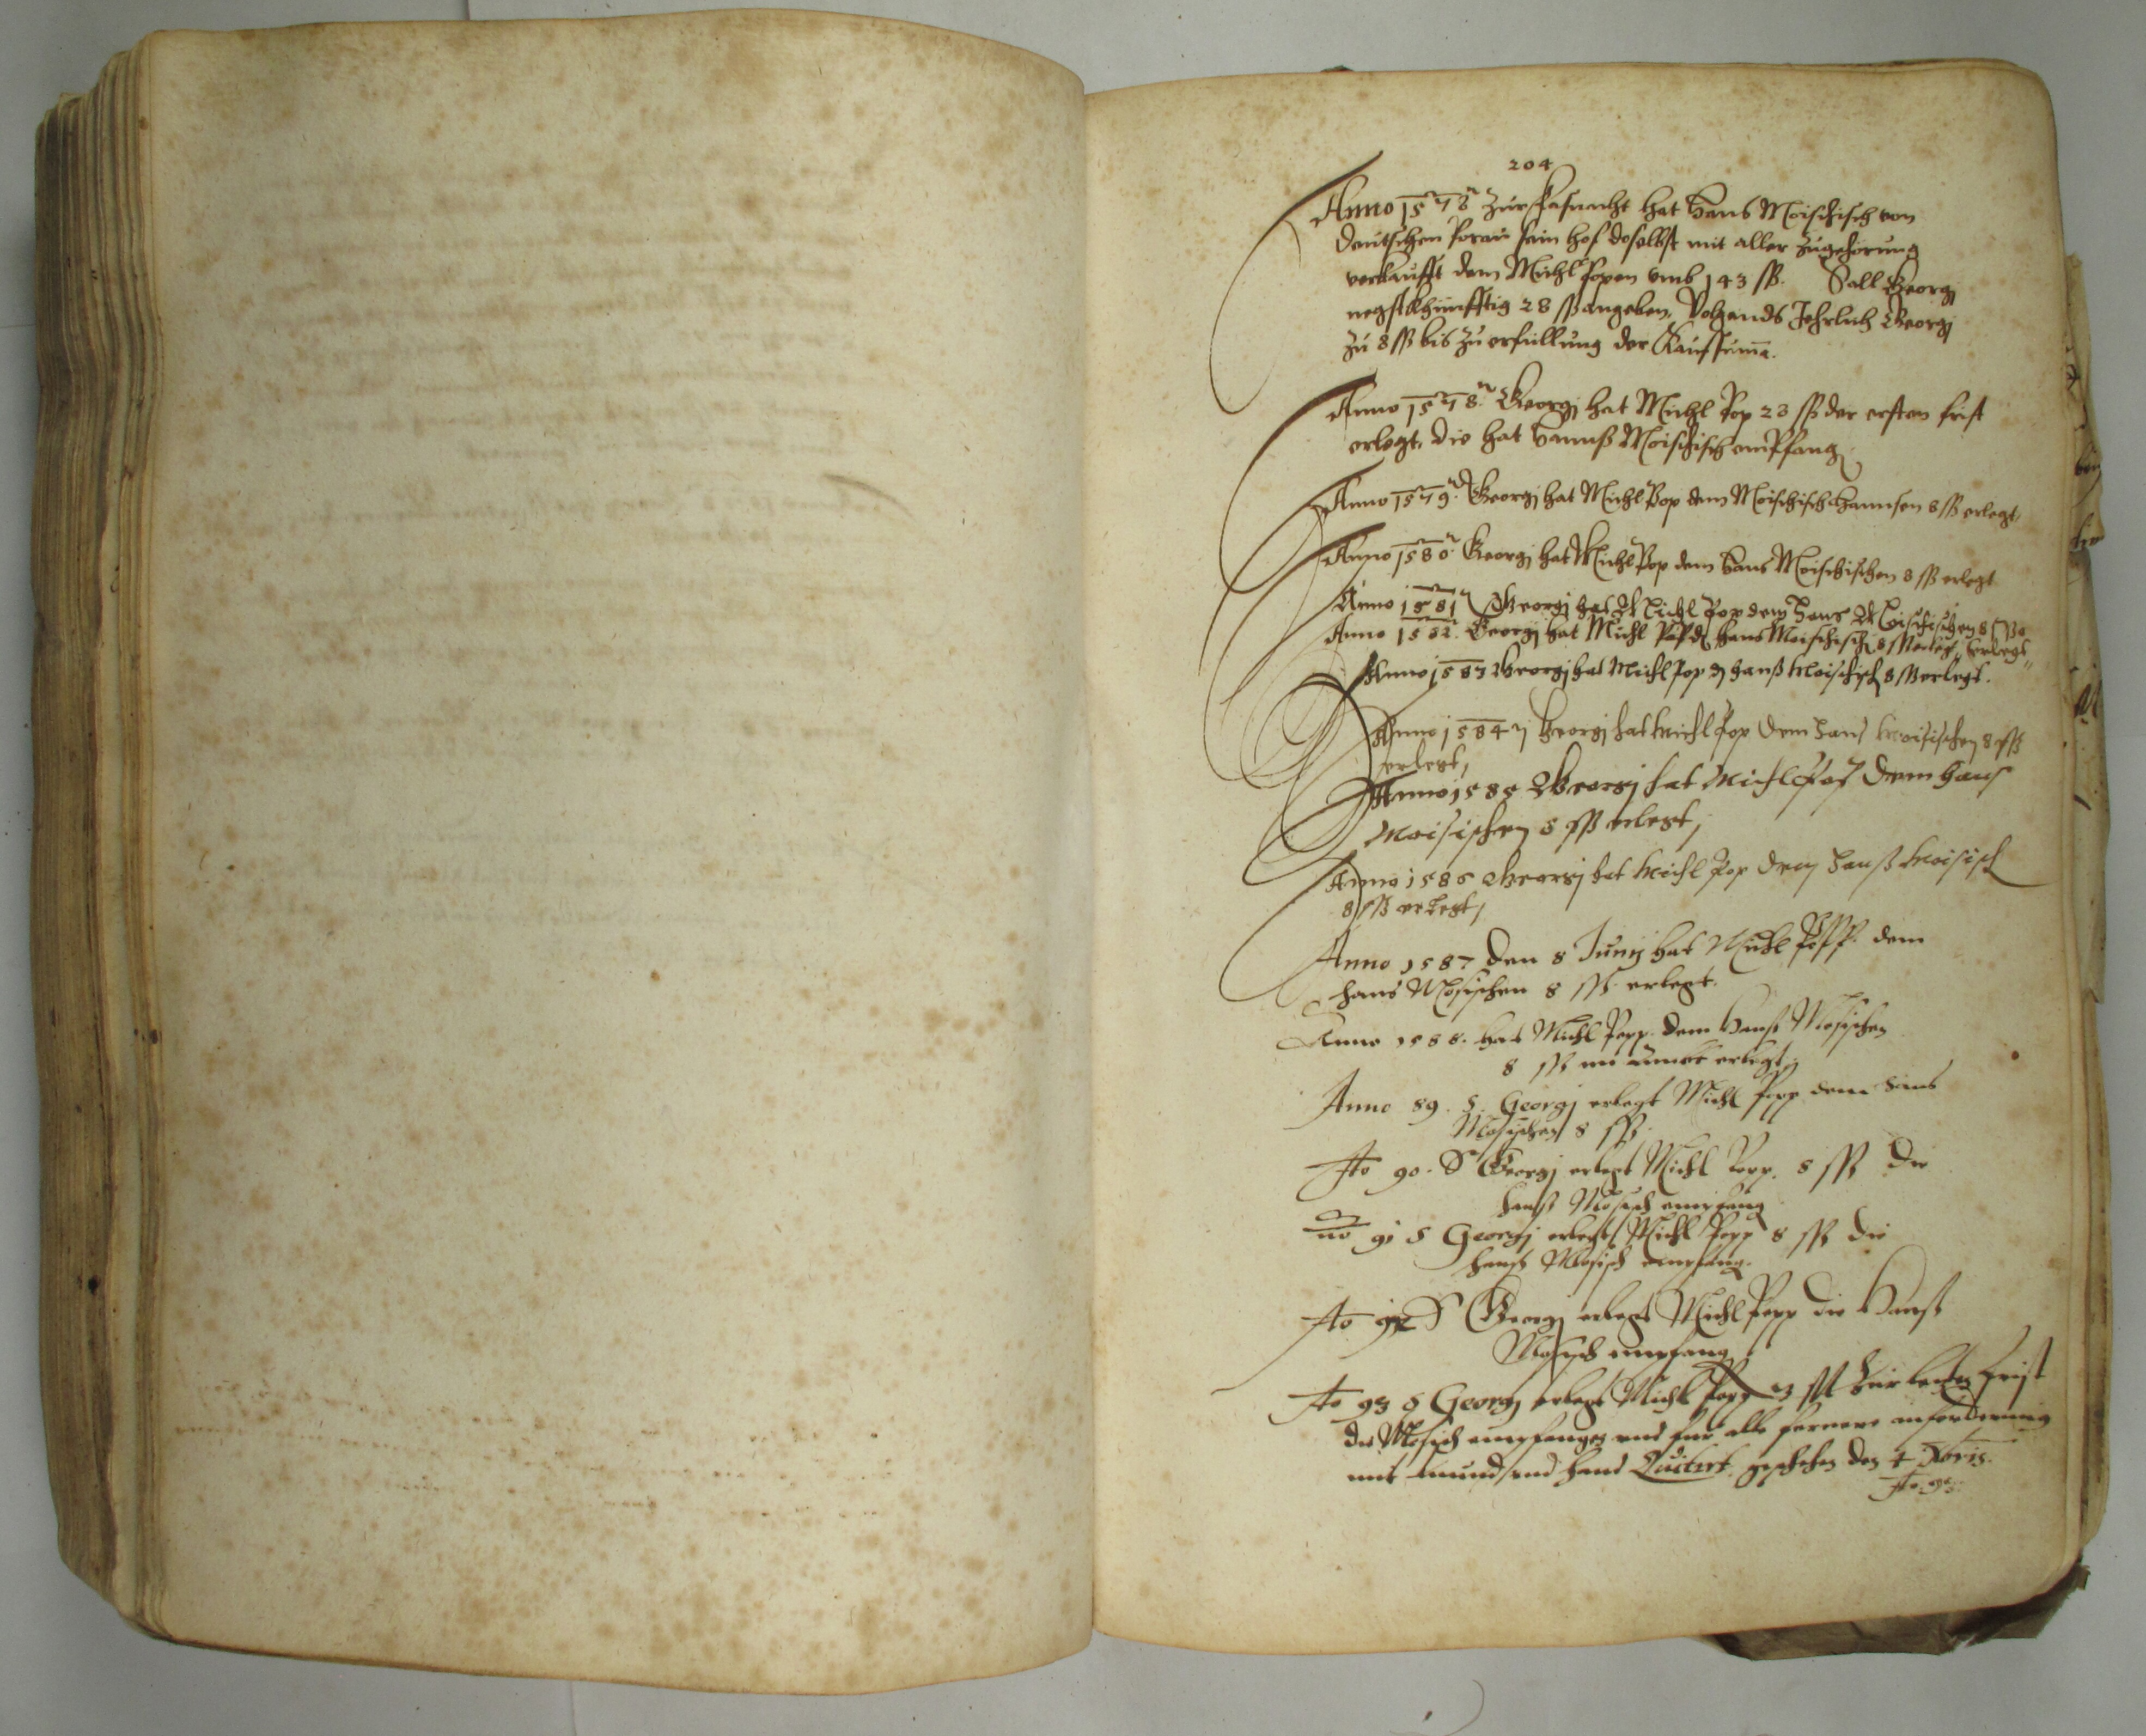 204
Anno 1578 zur Fasnacht hat Hans Moischisch von
Deutschen hof doselbst mit aller zugehörung
verkaufft dem Michl Popen umb 143 ſß. Sall Georgj
negstkhunfftig 28 ſß angeben, Volgends Jehrlich Georgj
zu 8 ſß bis zu erfüllung der Kaufsuma.
Anno 1578. Georgj hat Michl Pop 28 ſß der ersten frist
erlegt, die hat Hannß Moischisch empfang
Anno 1579. Georgj hat Michl Pop dem Moischisch Hannsen 8 ſß erlegt,
Anno 1580. Georgj hat Michl Pop dem Hans Moischischen 8 ſß erlegt
Anno 1581 Georgj hat Michl Pop dem Hans Moischischen 8 ſß
erlegt
Anno 1582. Georgj hat Michl Pop Hans Moischisch 8 ſß erlegt
Anno 1583 Georgj hat Michl Pop Hanß Moischisch 8 ſß erlegt.
Anno 1584 Georgj hat Michl Pop dem Hans Moisischen 8 ſß
erlegt,
Anno 1585 Georgj hat Michl Pop dem Hans
Moisischen 8 ſß erlegt,
Anno 1586 Georgj hat Michl Pop dem Hanß Moisisch
8 ſß erlegt,
Anno 1587 den 8 Junij hat Michl Popp dem
Hans Mosischen 8 ſß. erlegt.
Anno 1588. hat Michl Popp. dem Hanß Mosischen
8 ſß im ambt erlegt,
Anno 89. S. Georgj erlegt Michl Popp dem Hans
Mosischen 8 ſß
Ao 90. S Georgj erlegt Michl Popp. 8 ſß die
Hanß Mosisch empfang
Ao 91 S Georgj erlegt Michl Popp 8 ſß die
Hanß Mosisch empfang.
Ao 92 S Georgj erlegt Michl Popp die Hanß
Mosisch empfang
Ao 93 S Georgj erlegt Michl Popp 3 ſß zur letzten frist
die Mosisch empfangen und für alle fernere anforderung
mit mund und hand Quitirt. geschehen den 4 Xbris.
Ao. 93.